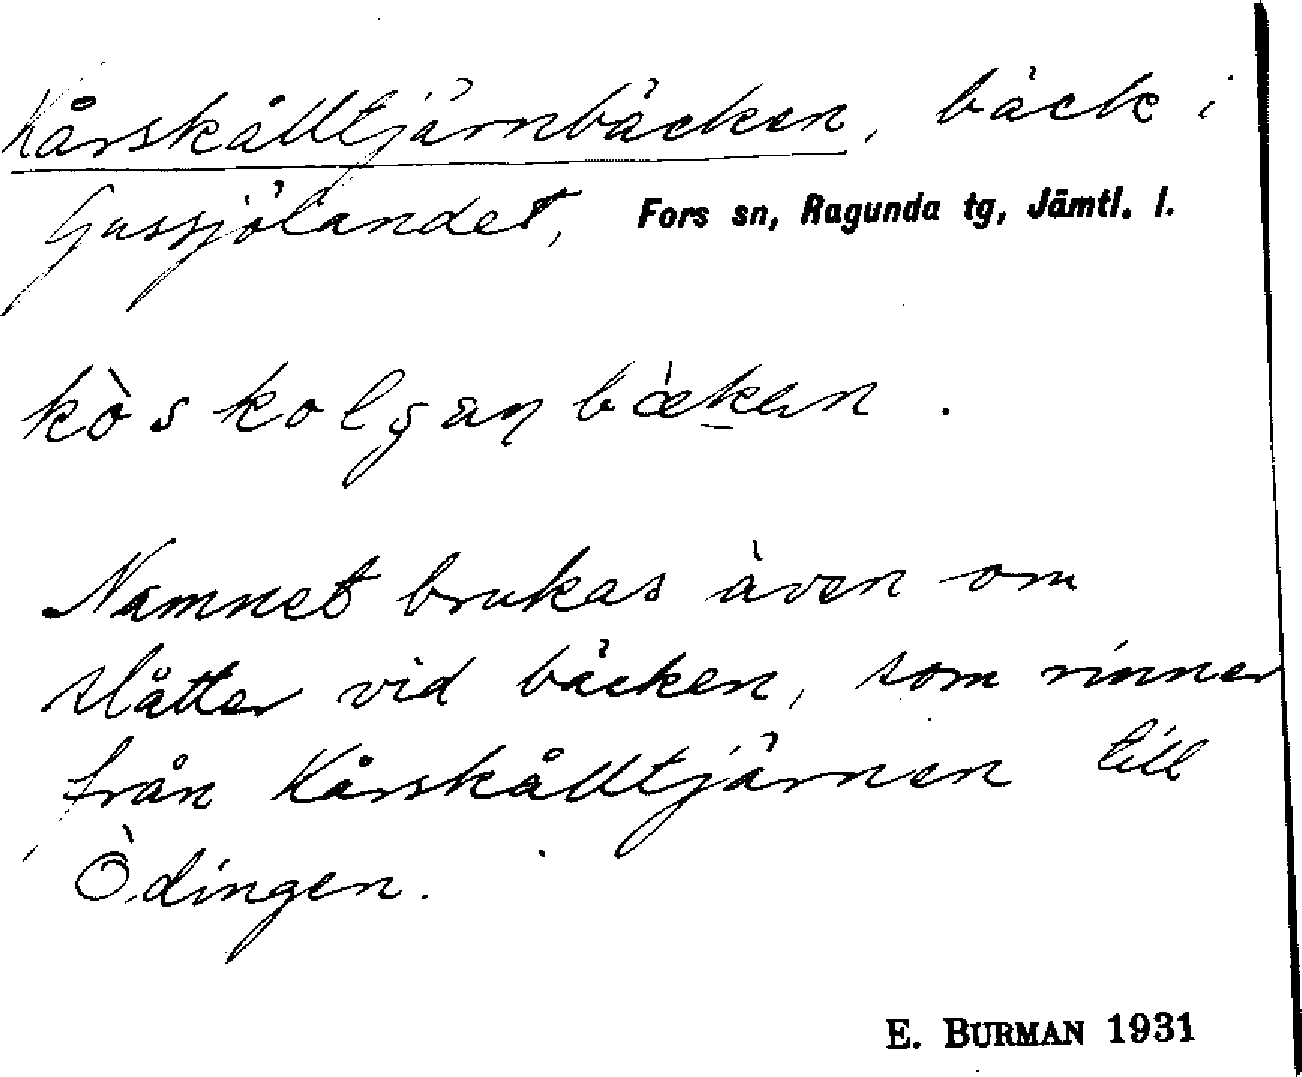 Kårskålltjärnbäcken, bäck i
Gussjölandet, Fors sn, Ragunda tg, Jämtl. l.
kò̀skolʂaɳbækan.
Namnet brukas även om
slåtter vid bäcken, som rinner
från Kårskålltjärnen till
Ödingen.
E. BURMAN 1931